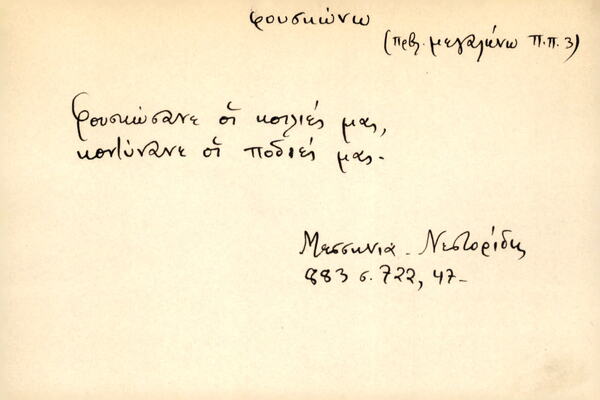 φουσκώνω
(πρβ. μεγαλώνω Π.π. 3)
Φουσκώσανε οἱ κοιλιές μας,
κοντύνανε οἱ ποδιές μας.
Μεσσηνία - Νεστορίδης
883 σ. 722, 47-